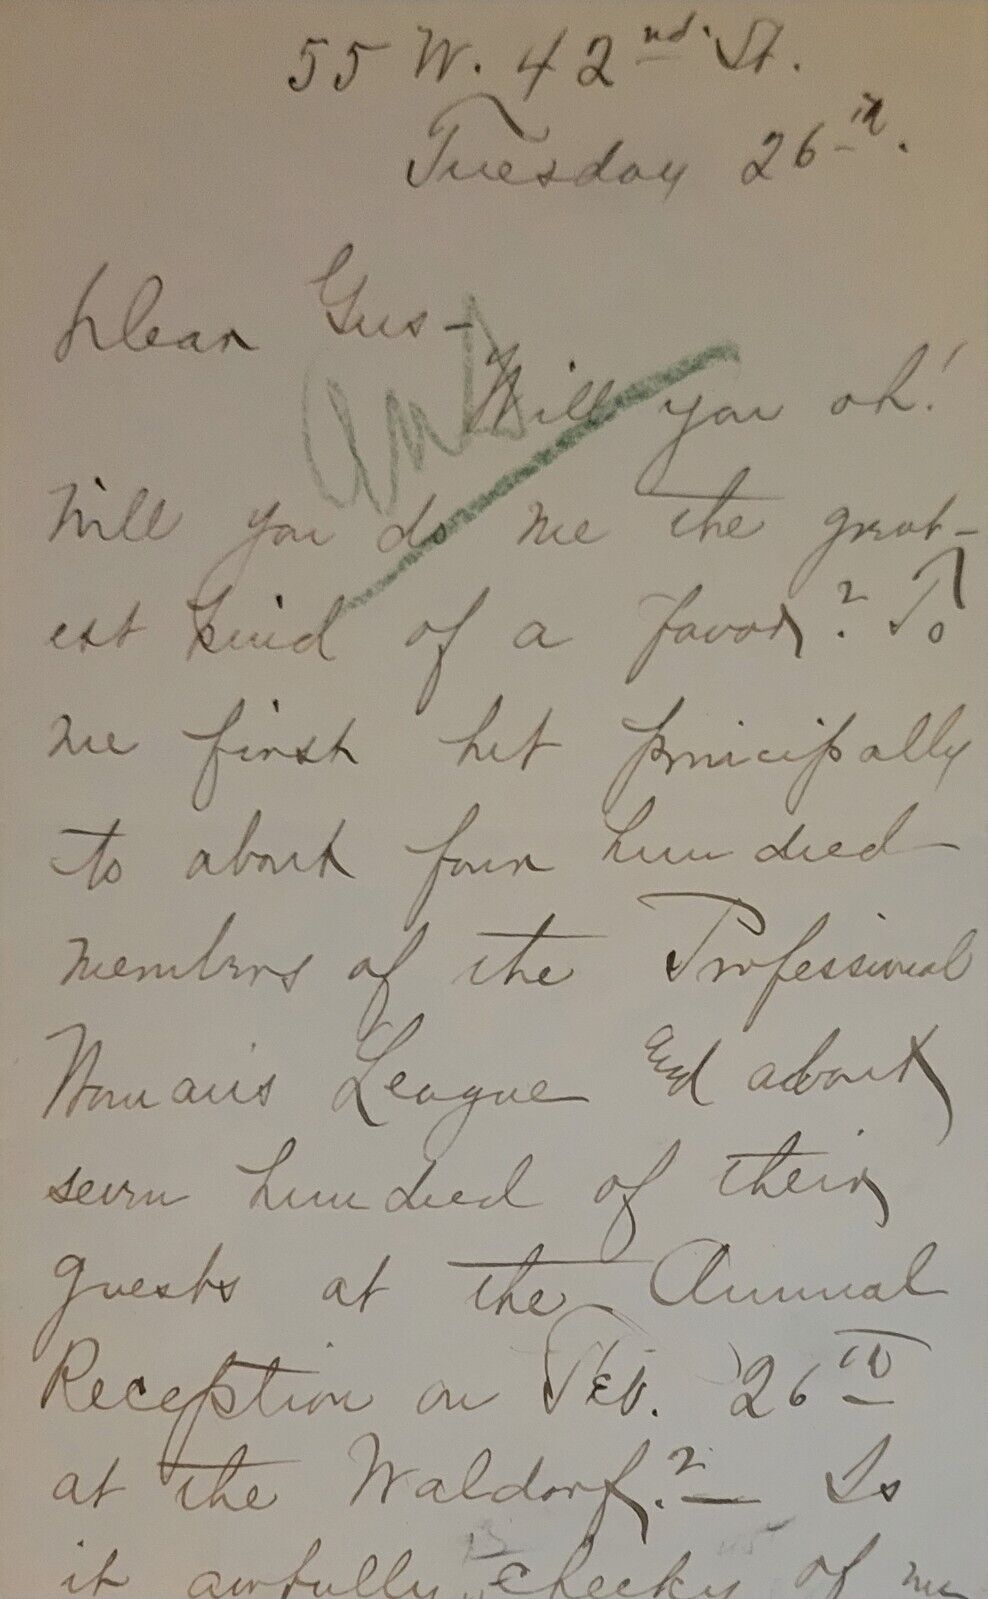 55 W. 42nd. St.
Tuesday 26th.
Dear Gus-
Ans
Will you oh!
Will you do me the great-
est kind of a favor? To
me first but principally
to about four hundred
members of the Professional
Woman's League and about
seven hundred of their
guests at the Annual
Reception on Feb. 26th
at the Waldorf?- Is
it awfully cheeky of me